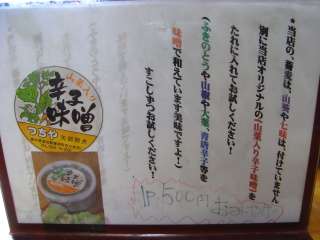 ★当店の、蕎麦は、山葵や七味は、付けていません
別に当店オリジナルの「山菜入り辛子味噌」を
たれに入れてお試しください!
(ふきのとうや、山椒や大葉、青唐辛子等を
味噌で和えています美味ですよ!)
すこしずつお試しください!
山菜入り
辛子
味噌
つちや
1P 500円